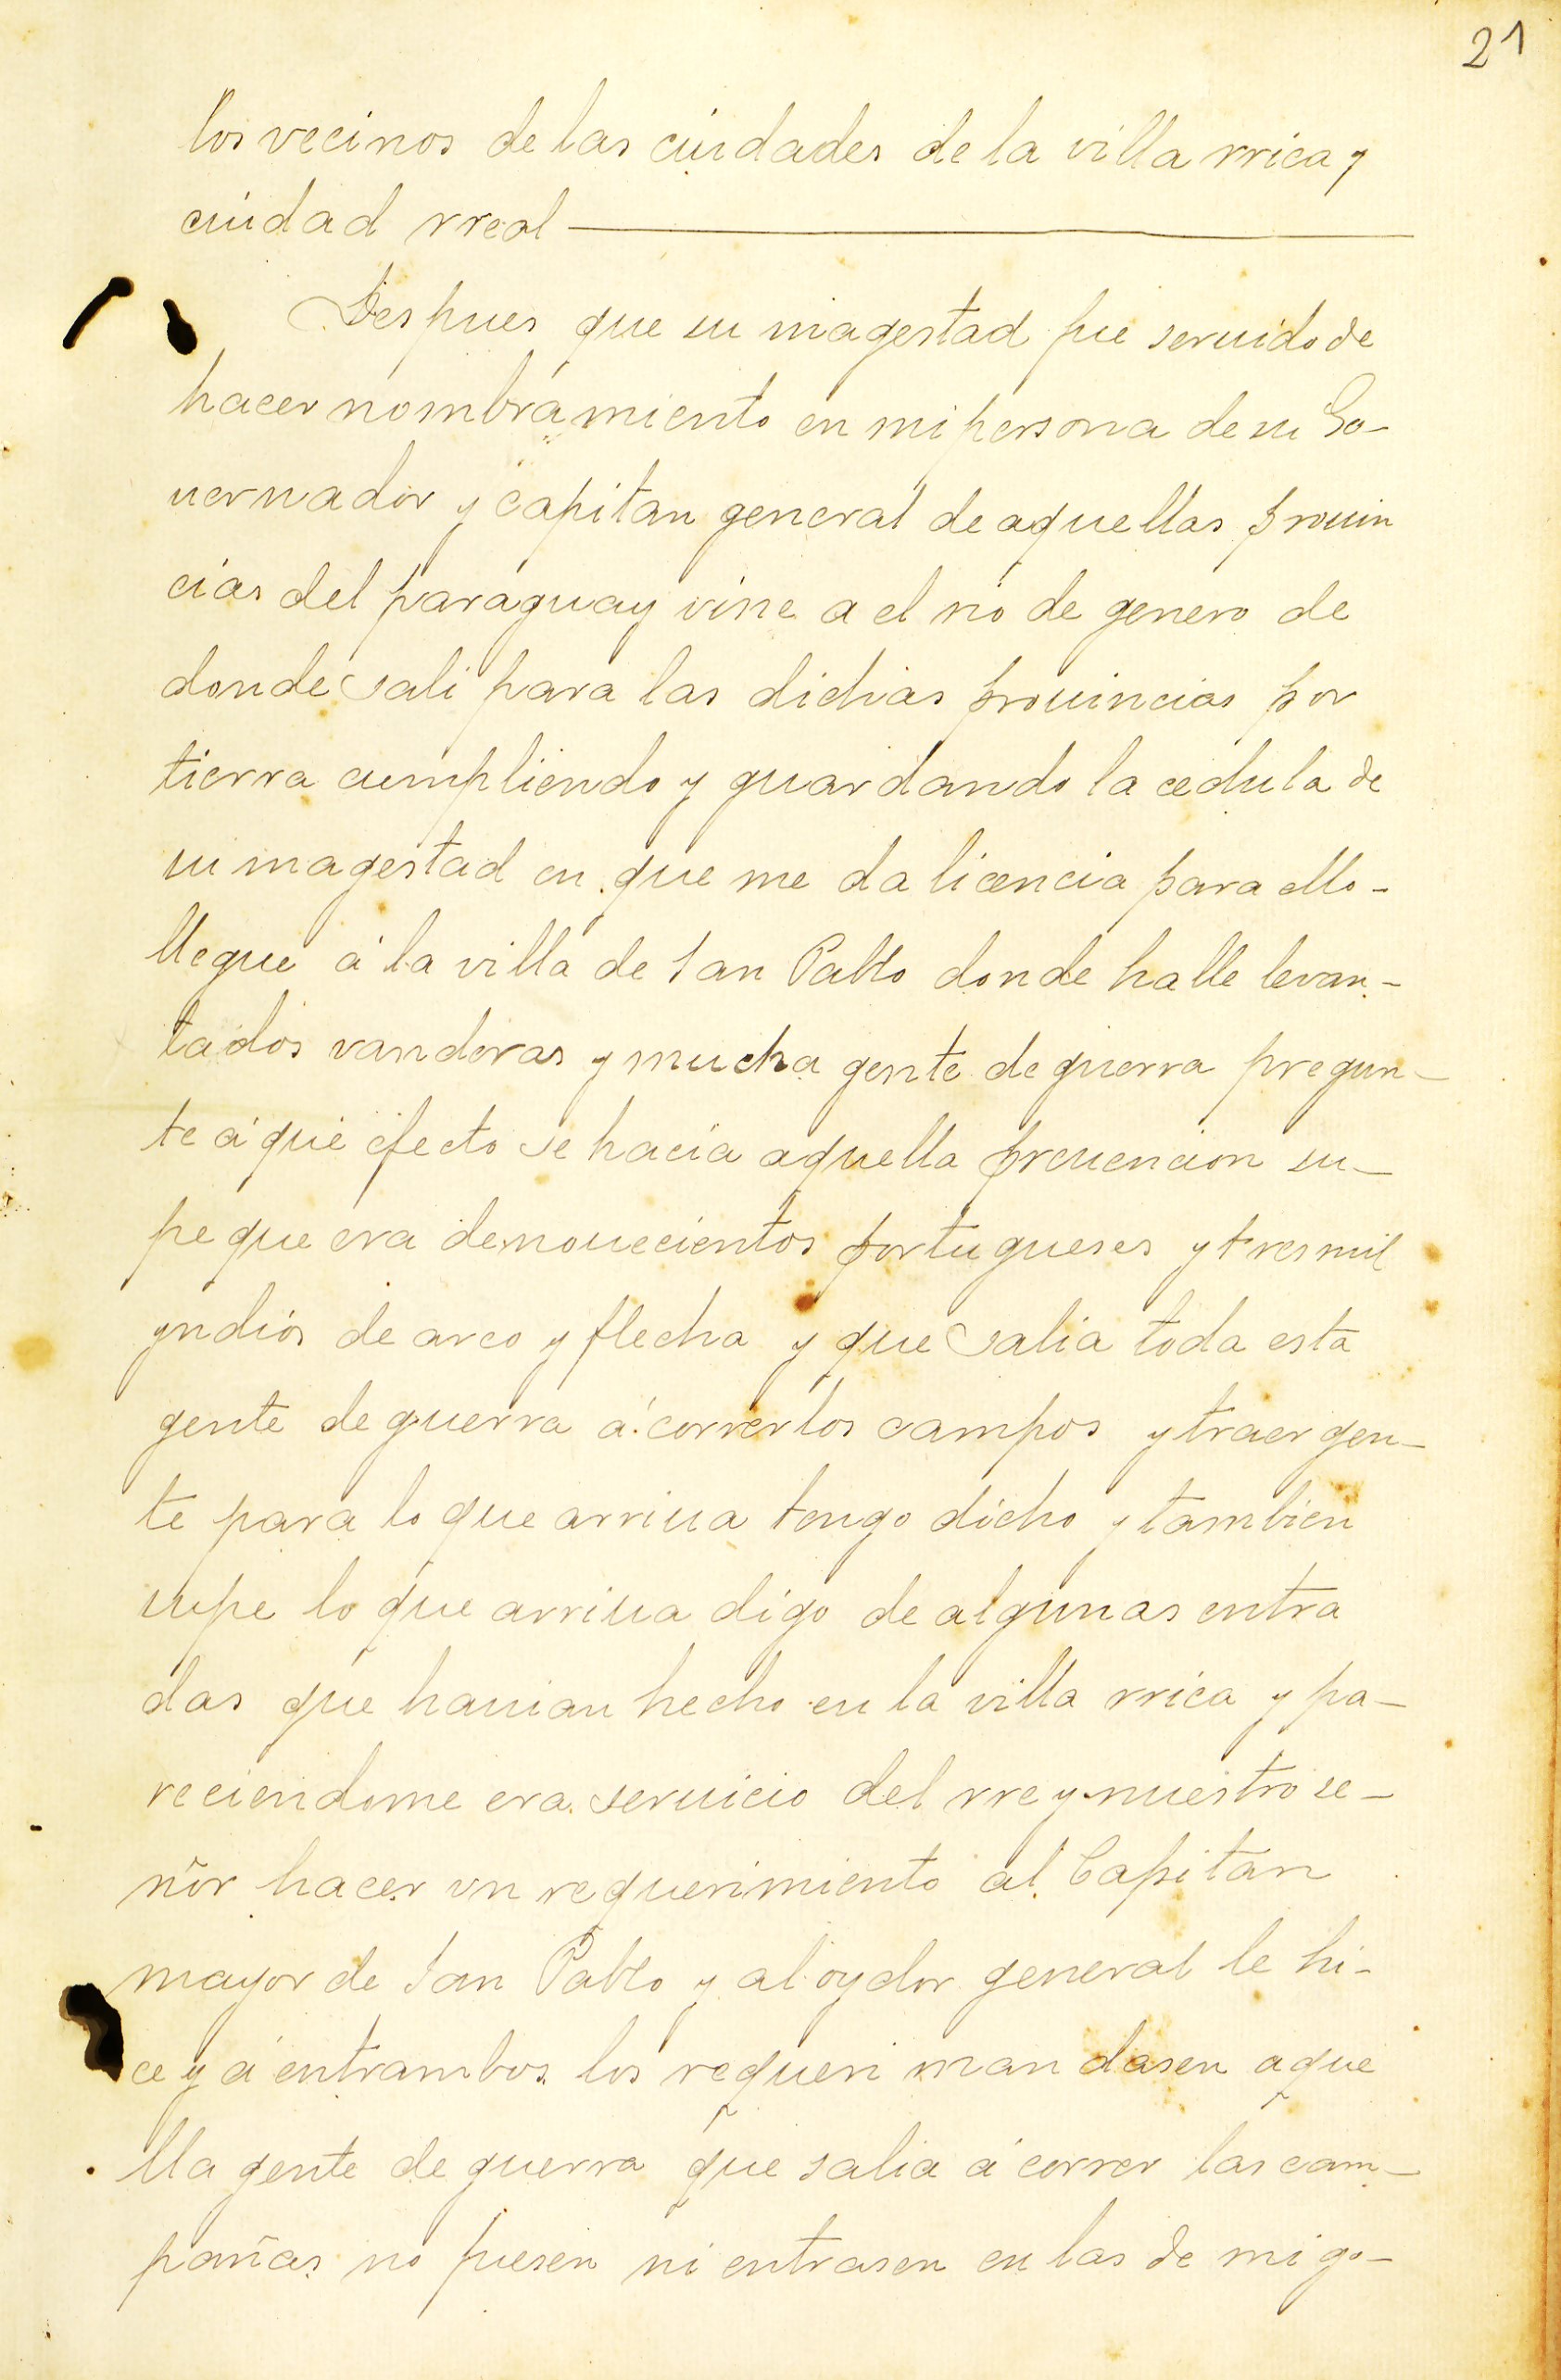 21
los vecinos de las ciudades de la villa rrica y
ciudad rreal
Despues que su magestad fue seruido de
hacer nombramiento en mi persona de su Go-
uernador y capitan general de aquellas prouin
cias del paraguay vine a el rio de genero de
donde sali para las dichas prouincias por
tierra cumpliendo y guardando la cedula de
su magestad en que me da licencia para ello -
llegue á la villa de San Pablo donde halle levan-
tados vanderas y mucha gente de guerra pregun-
te á que efecto se hacia aquella preuencion su-
pe que era de nouecientos portugueses y tres mil
yndios de arco y flecha y que salia toda esta
gente de guerra á correr los campos y traer gen-
te para lo que arriua tengo dicho y tambien
supe lo que arriua digo de algunas entra
das que hauian hecho en la villa rrica y pa-
reciendome era seruicio del rrey nuestro se-
ñor hacer vn requerimiento al Capitan
mayor de San Pablo y al oydor general le hi-
ce y á entrambos los requeri mandasen aque
lla gente de guerra que salia á correr las cam-
pañas no fuesen ni entrasen en las de mi go-